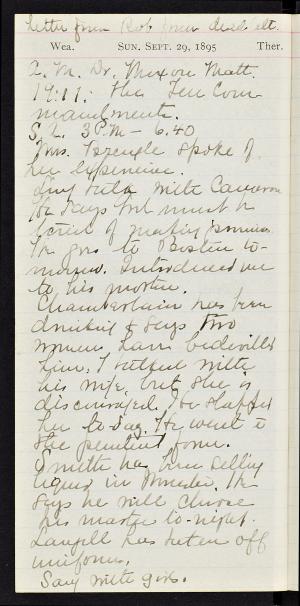 Letter from Rob from dead let.
Wea. SUN. SEPT. 29, 1895 Ther.
A. M. Dr. Mixon Matt.
19:17: The Ten Com-
mandments.
S. A. 3 P.M - 6.40
Mrs. Brengle spoke of
her experience.
Long talk with Cameron
He says God must be
of making promises.
He goes to Boston to-
morrow. Introduced me
to his mother.
Chamberlain has been
drinking & says two
women have bedeviled
him. I talked with
his wife, but she is
discouraged. He slapped
her to-day. He went to
the penitent form.
Smith has been selling
liquor in Worcester. He
says he will choose
his master to-night.
Langill has taken off
uniform.
Sang with girls.